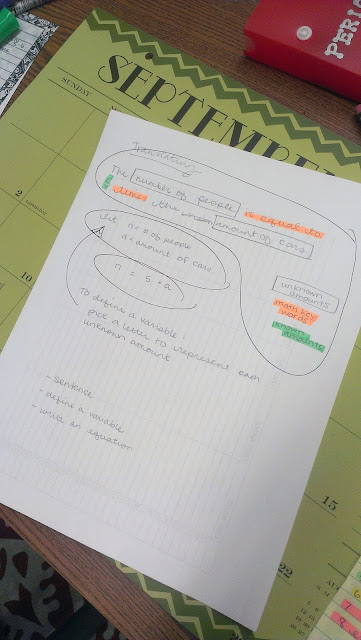 PERIO
SEPTEMBER
SUNDAY
2
10
15
22
Translating
The number of people is equal to
times the amount of cars
let n = # of people
a = amount of cars
n = 5 · a
To define a variable,
pick a letter to represent each
unknown amount
- sentence
- define a variable
- write an equation
unknown
amounts
math key
words
known
amounts